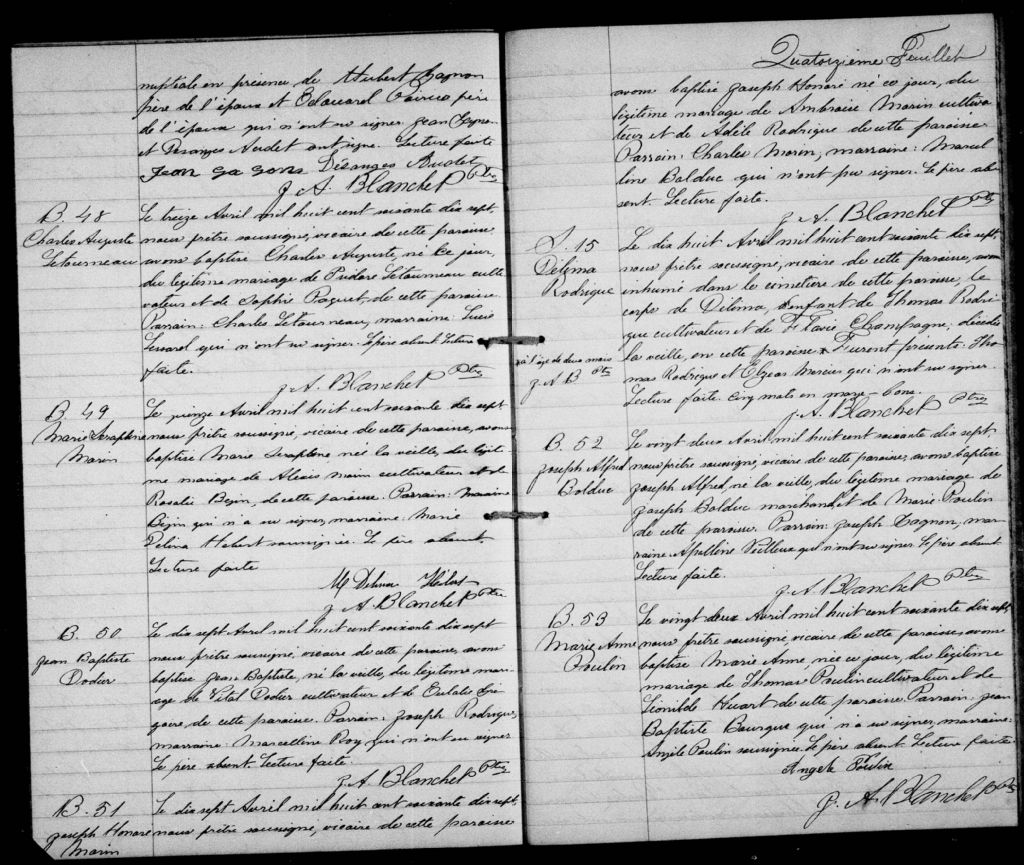 nuptiale en présence de Hubert Gagnon
père de l'époux et Edouard père
de l'épouse qui n'ont su signer. Jean Gagnon
et Desanges Audet ont signé. Lecture faite
Jean ga gons Désanges Audet
J. A. Blanchet Ptre
B. 48
Charles Auguste
Letourneau
Le treize Avril mil huit cent soixante dix sept,
nous prêtre soussigné, vicaire de cette paroisse,
avons baptisé Charles Auguste, né ce jour,
du légitime mariage de Letourneau culti
vateur et de Sophie Paquet, de cette paroisse.
Parrain: Charles Letourneau, marraine: Lucie
qui n'ont su signer. Père absent. Lecture
faite.
J. A. Blanchet Ptre
B. 49
Marie Seraphine
Morin
Le quinze Avril mil huit cent soixante dix sept
nous prêtre soussigné, vicaire de cette paroisse, avons
baptisé Marie Seraphine née la veille, du légiti
me mariage de Alexis Morin cultivateur et de
Rosalie Begin, de cette paroisse. Parrain:
Begin qui n'a su signer, marraine: Marie
Delina Hebert soussignée. Le père absent.
Lecture faite
M Delina
J. A. Blanchet Ptre
B. 50
Jean Baptiste
Dodier
Le dix sept Avril mil huit cent soixante dix sept
nous prêtre soussigné, vicaire de cette paroisse, avons
baptisé Jean Baptiste, né la veille, du légitime mari
age de Vital Dodier cultivateur et de Eulalie Gré
goire de cette paroisse. Parrain: Joseph Rodrigue,
marraine: Marcelline Roy qui n'ont su signer
Le père absent. Lecture faite.
J. A. Blanchet Ptre
B. 51
Joseph Honoré
Morin
Le dix sept Avril mil huit cent soixante dix sept,
nous prêtre soussigné, vicaire de cette paroisse
Quatorzième Feuillet
avons baptisé Joseph Honoré né ce jour, du
légitime mariage de Ambroise Morin cultiva
teur et de Adèle Rodrigue de cette paroisse
Parrain: Charles Morin, marraine: Marcel
line Bolduc qui n'ont pu signer. Le père ab
sent. Lecture faite.
J. A. Blanchet Ptre
S. 15
Délima
Rodrigue
Le dix huit Avril mil huit cent soixante dix sept,
nous prêtre soussigné, vicaire de cette paroisse, avons
inhumé dans le cimetiere de cette paroisse, le
corps de Délima, enfant de Thomas Rodri
gue cultivateur et de Flavie Champagne, décédée
la veille, en cette paroisse * Furent présents: Tho
* à l'age de deux mois
J. A. B Ptre
mas Rodrigue et Elzear Mercier qui n'ont su signer.
Lecture faite. Cinq mots en marge bons.
J. A. Blanchet Ptre
B. 52
Joseph Alfred
Bolduc
Le vingt deux Avril mil huit cent soixante dix sept,
nous prêtre soussigné, vicaire de cette paroisse, avons baptisé
Joseph Alfred, né la veille, du légitime mariage de
Joseph Bolduc marchand, et de Marie Poulin
de cette paroisse. Parrain: Joseph Gagnon, mar
raine: Apolline Veilleux qui n'ont su signer. Le père absent
Lecture faite.
J. A. Blanchet Ptre
B. 53
Marie Anne
Poulin
Le vingt deux Avril mil huit cent soixante dix sept
nous prêtre soussigné, vicaire de cette paroisse avons
baptisé Marie Anne, née ce jour, du légitime
mariage de Thomas Poulin cultivateur et de
Léonilde Huart de cette paroisse. Parrain: Jean
Baptiste Bourque qui n'a su signer, marraine:
Angèle Poulin soussignée. Le père absent. Lecture faite
Angele Poulin
J. A. Blanchet Ptre